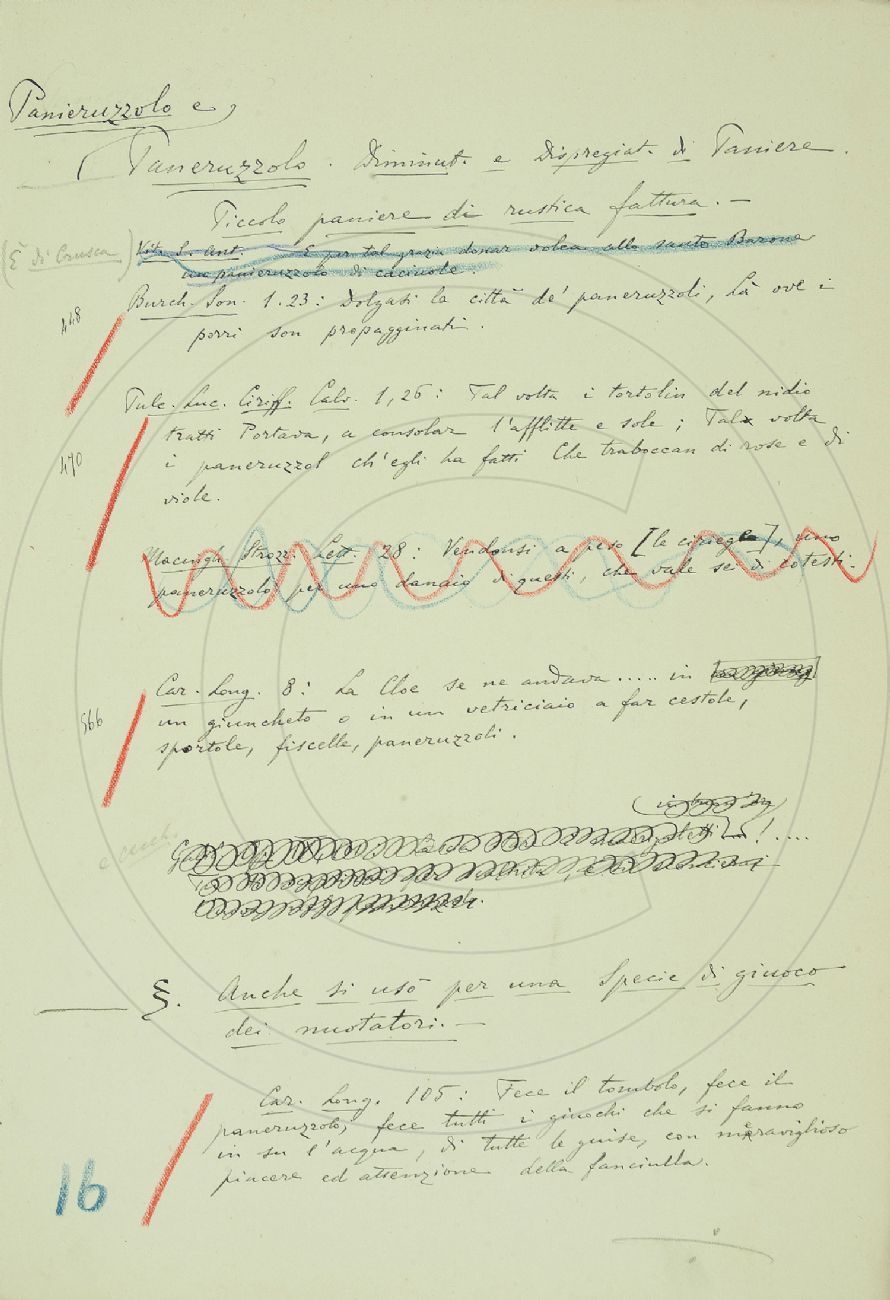 Panieruzzolo e
Paneruzzolo. Diminut. e Dispregiat. di Paniere.
Piccolo paniere di rustica fattura. —
(È di Crusca) Vit. S. Ant. E per tal grazia donar volea allo santo Barone
un panieruzzolo di caciuole.
Burch. Son. 1.23: Dolgasi la città de' paneruzzoli, Là ove i
448
porri son propagginati.
Pulc. Luc. Ciriff. Calv. 1,26: Tal volta i tortolin del nidio
tratti Portava, a consolar l'afflitte e sole; Tal volta
470
i paneruzzol ch'egli ha fatti Che traboccan di rose e di
viole.
Macingh. Strozz. Lett. 28: Vendonsi a peso [le ciriege], uno
paneruzzolo per uno danaio di questi, che vale sei di cotesti.
Car. Long. 8: La Cloe se ne andava ..... in
566
un giuncheto o in un vetriciaio a far cestole,
sportole, fiscelle, paneruzzoli.
e anche
§. Anche si usò per una Specie di giuoco
dei nuotatori. —
Car. Long. 105: Fece il tombolo, fece il
paneruzzolo, fece tutti i giuochi che si fanno
in su l'acqua, di tutte le guise, con maraviglioso
piacere ed attenzione della fanciulla.
16